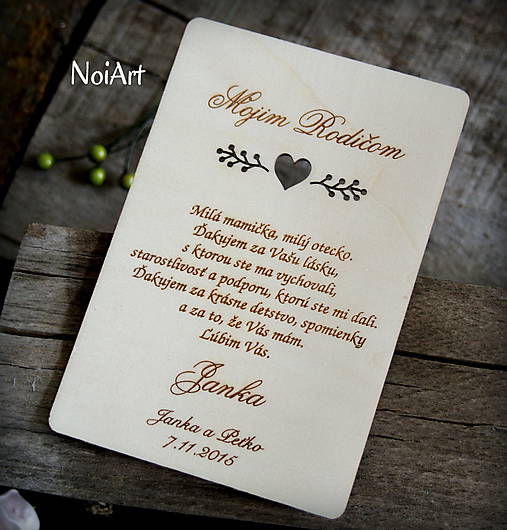 NoiArt
Mojim Rodičom
Milá mamička, milý otecko.
Ďakujem za Vašu lásku,
s ktorou ste ma vychovali,
starostlivosť a podporu, ktorú ste mi dali.
Ďakujem za krásne detstvo, spomienky
a za to, že Vás mám.
Ľúbim Vás.
Janka
Janka a Peťko
7.11.2015